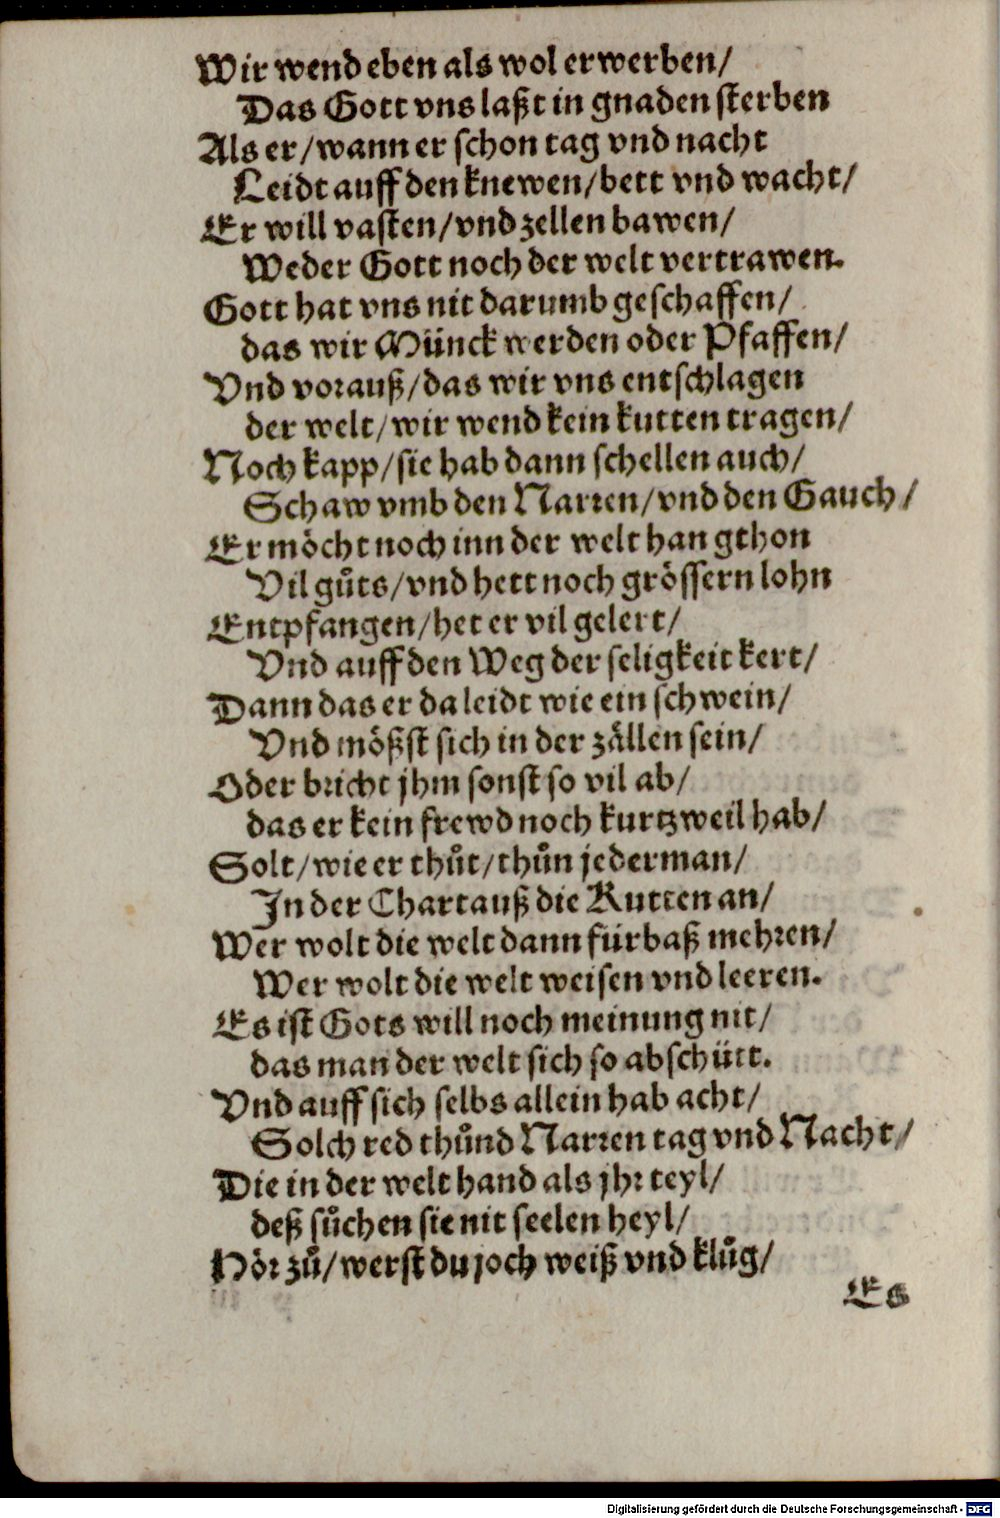 Wir wend eben als wol erwerben/
Das Gott vns laßt in gnaden sterben
Als er/wann er schon tag vnd nacht
Leidt auff den knewen/bett vnd wacht/
Er will vasten/vnd zellen bawen/
Weder Gott noch der welt vertrawen.
Gott hat vns nit darumb geschaffen/
das wir Münck werden oder Pfaffen/
Vnd vorauß/das wir vns entschlagen
der welt/wir wend kein kutten tragen/
Noch kapp/sie hab dann schellen auch/
Schaw vmb den Narren/vnd den Gauch/
Er möcht noch inn der welt han gthon
Vil gůts/vnd hett noch grössern lohn
Entpfangen/het er vil gelert/
Vnd auff den Weg der seligkeit kert/
Dann das er da leidt wie ein schwein/
Vnd mößst sich in der zällen sein/
Oder bricht jhm sonst so vil ab/
das er kein frewd noch kurtzweil hab/
Solt/wie er thůt/thůn jederman/
In der Chartauß die Kutten an/
Wer wolt die welt dann fürbaß mehren/
Wer wolt die welt weisen vnd leeren.
Es ist Gots will noch meinung nit/
das man der welt sich so abschütt.
Vnd auff sich selbs allein hab acht/
Solch red thůnd Narren tag vnd Nacht/
Die in der welt hand als jhr teyl/
deß sůchen sie nit seelen heyl/
Hör zů/werst du joch weiß vnd klůg/
Es
Digitalisierung gefördert durch die Deutsche Forschungsgemeinschaft - DFG